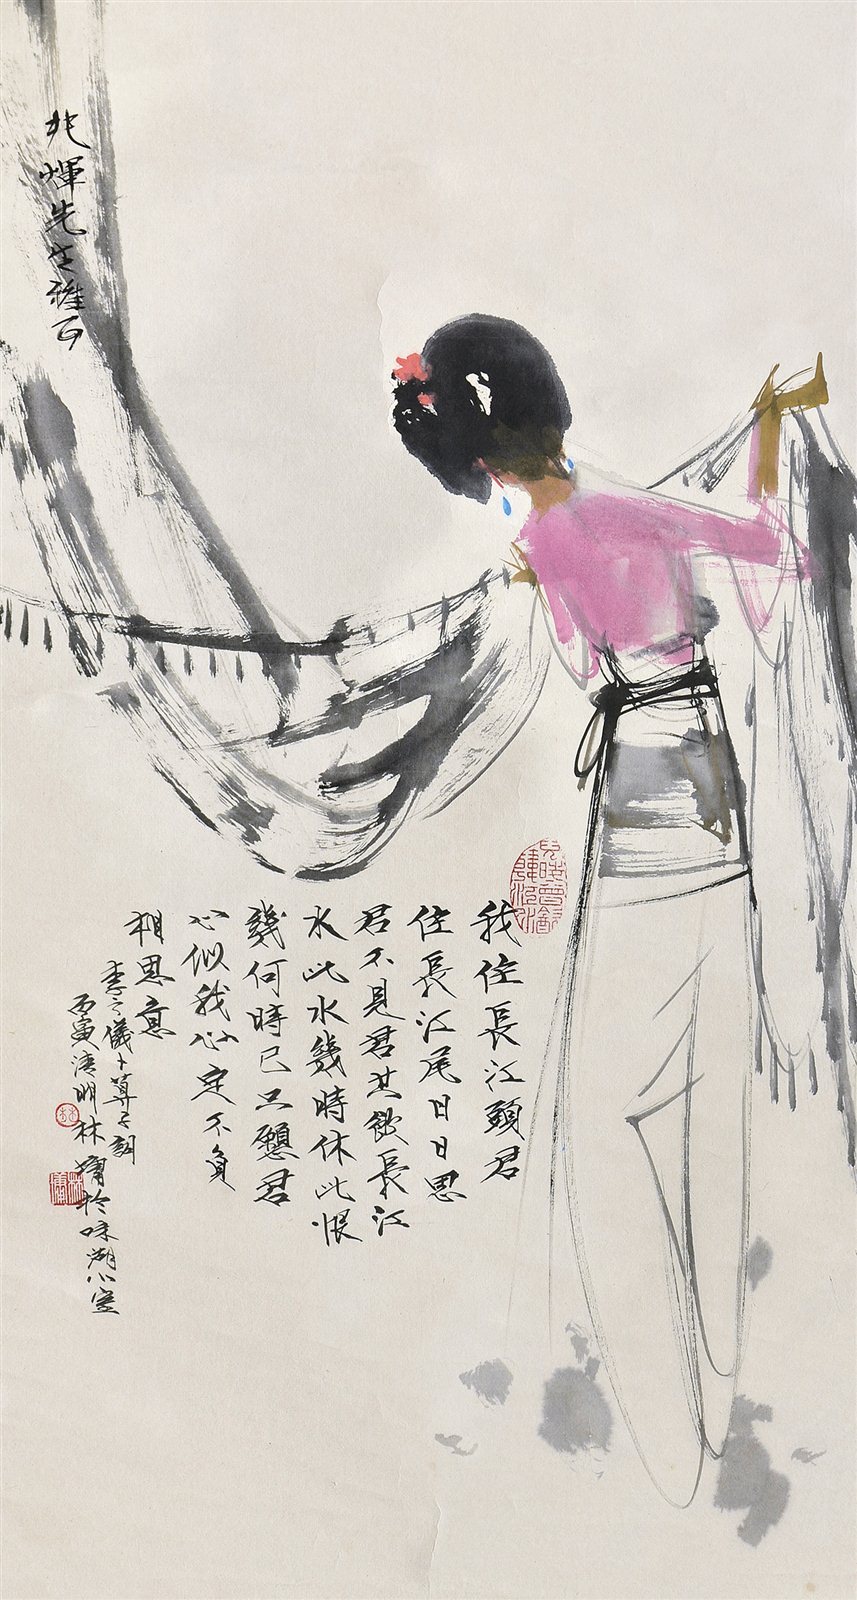 兆煇先生雅正
我住長江頭君
住長江尾日日思
君不見君共飲長江
水此水幾時休此恨
幾何時已只願君
心似我心定不負
相思意
李之儀卜算子詞
丙寅清明林墉於湖小室